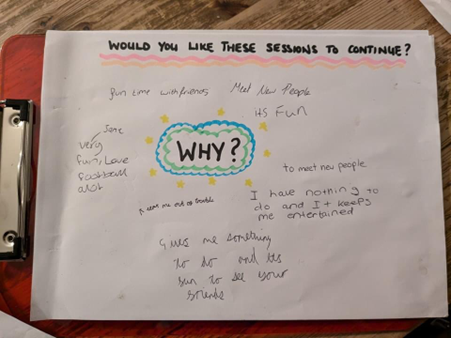 WOULD YOU LIKE THESE SESSIONS TO CONTINUE?
fun time with friends
Meet New People
its Fun
Some
very
fun, Love
football
alot
WHY?
to meet new people
me out of trouble
I have nothing to
do and It keeps
me entertained
Gives me something
to do and its
fun to see your